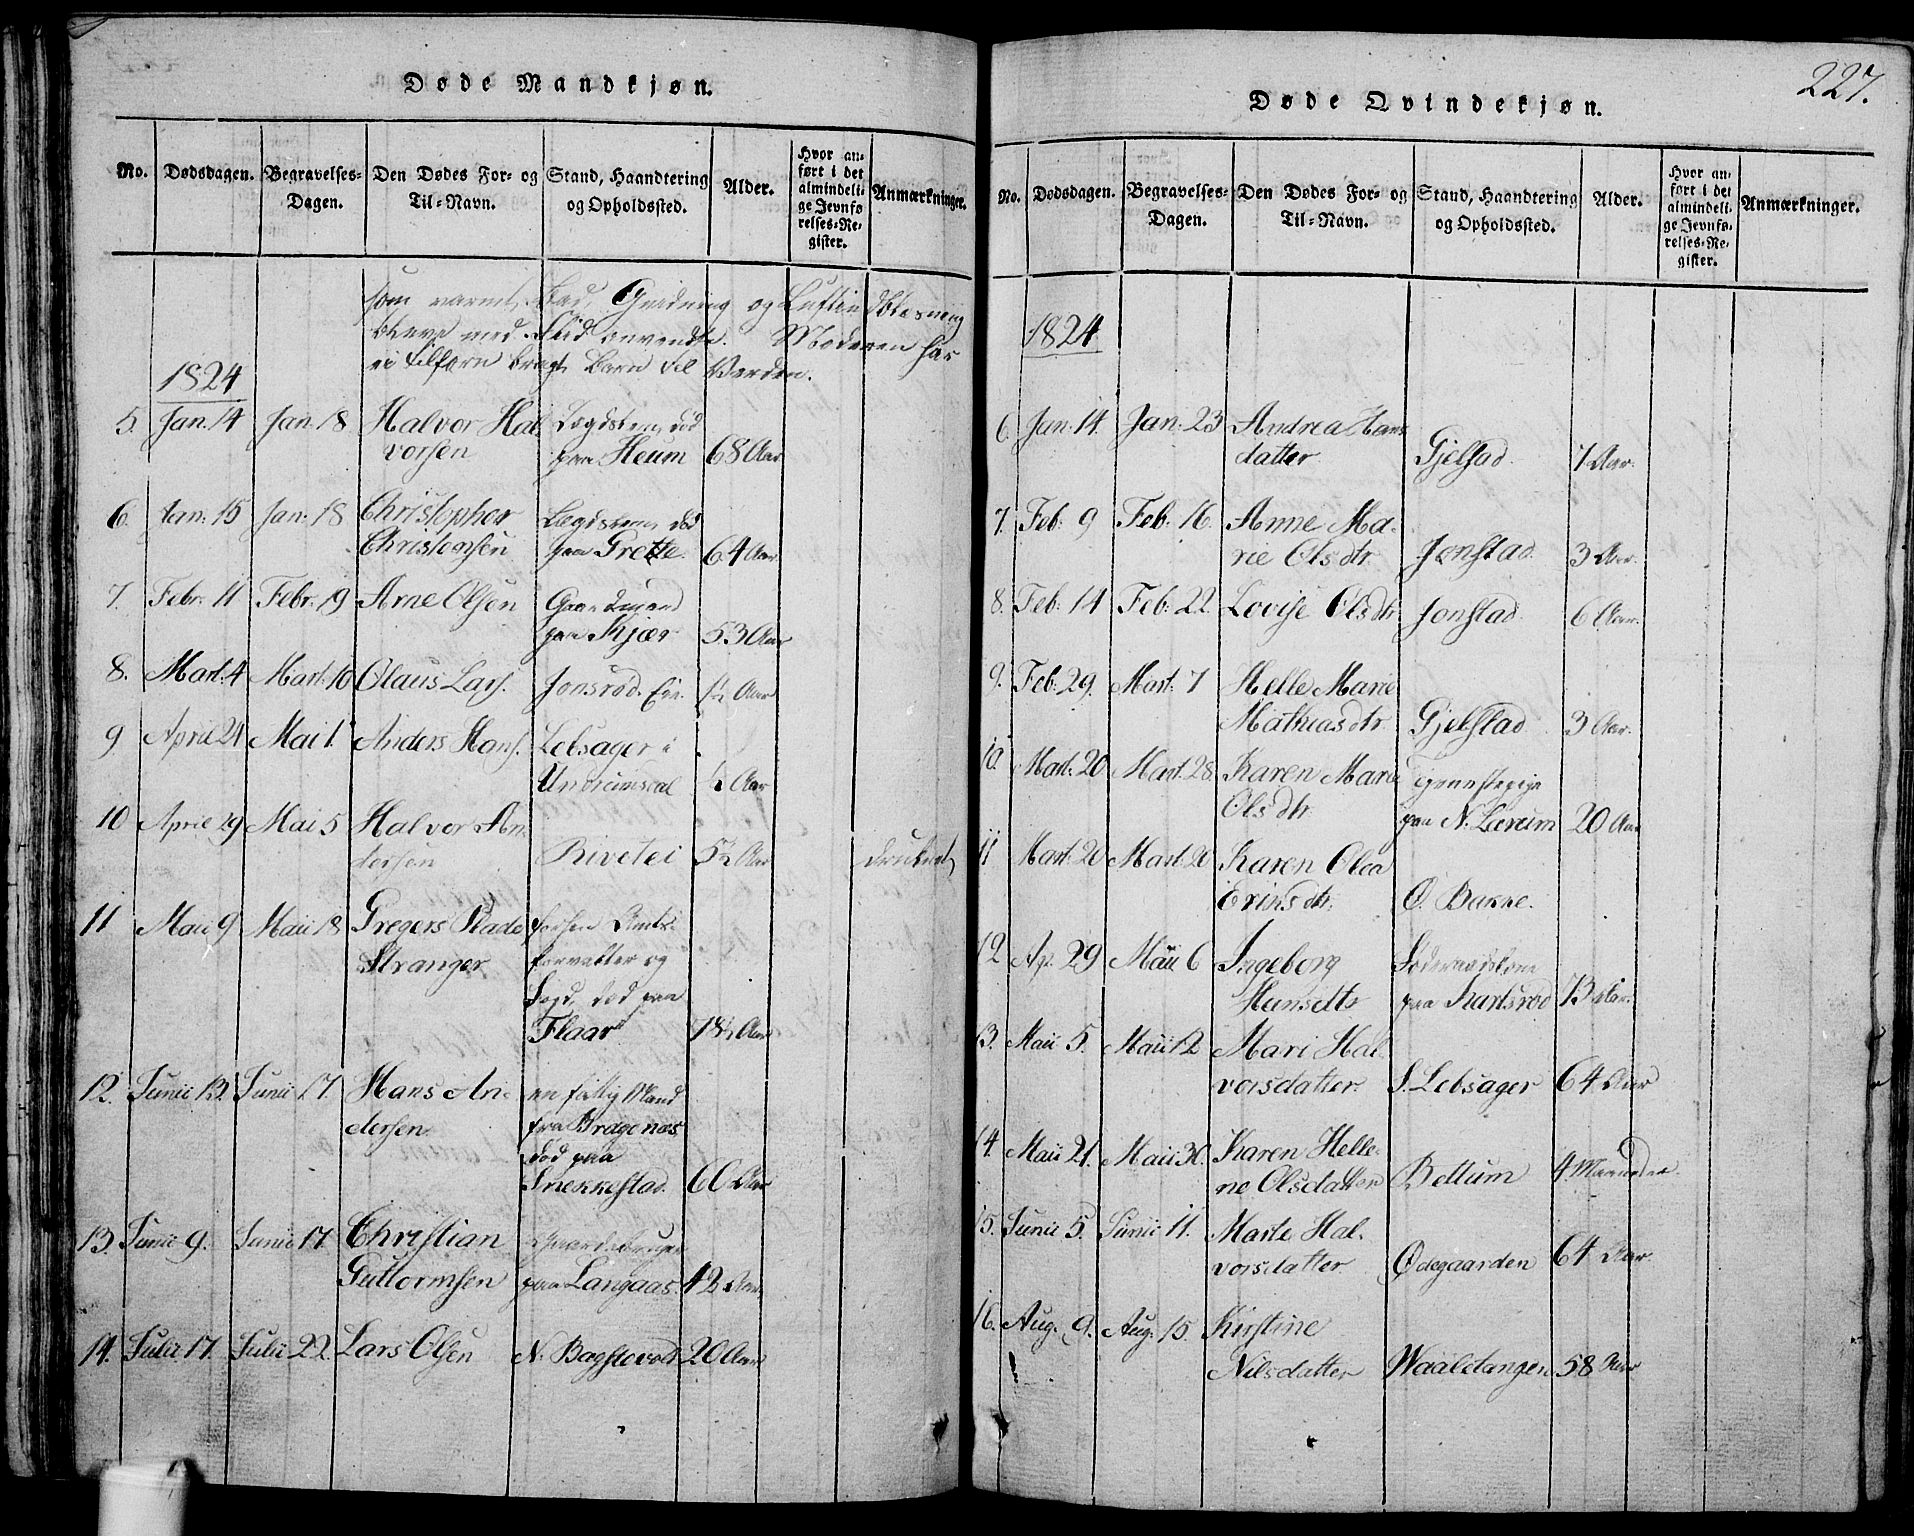 227.
Døde Mandkjøn.
No.
Dødsdagen.
Begravelses-
Dagen.
Den Dødes For- og
Til-Navn.
Stand, Haandtering
og Opholdssted.
Alder.
Hvor an-
ført i det
almindeli-
ge Jevnfø
relses-Re-
gister.
Anmærkninger.
som varmt Bad, Gnidning og Luftind
bleve med Flid anvendte. Moderen har
ei tilforn bragt Barn til Verden.
1824
5. Jan: 14 Jan: 18 Halvor Hal Lægdslem, død
vorsen paa Heum 68 Aar
6. Jan: 15 Jan: 18 Christopher Lægdslem, død
Christensen paa Grette. 64 Aar
7. Febr: 11 Febr: 19 Arne Olsen Gaardmand
paa Kjær 53 Aar
8. Mart: 4 Mart: 10 Olaus Lars. Jonsrød. Eie. 1½ Aar
9 April 24 Mai 1. Anders Hans. Lebsager i
Undrimsdal ½ Aar
10 April 29 Mai 5 Halvor An
dersen 5½ Aar druknet
11 Maii 9 Maii 18 Gregers Stade forhen Amts-
Stranger forvalter og
Fogd, død paa
Flaar 78½ Aar
12. Junii 13. Junii 17 Hans An- en fattig Mand
dersen fra Bragenæs
død paa
Snekkestad. 60 Aar
13. Junii 9. Junii 17. Christian Gaardbruger
Guttormsen paa Langaas. 42 Aar
14. Julii 17. Julii 22. Lars Olsen N. Bagstevold 20 Aar
Døde Qvindekjøn.
No.
Dødsdagen.
Begravelses-
Dagen.
Den Dødes For- og
Til-Navn.
Stand, Haandtering
og Opholdssted.
Alder.
Hvor an-
ført i det
almindeli-
ge Jevnfø-
relses-Re-
gister.
Anmærkninger.
1824
6. Jan: 14. Jan: 23 Andrea Hans
datter Gjelstad. 7 Aar.
7. Feb: 9 Feb: 16. Anne Ma-
rie Olsdtr. Jonstad. 3 Aar.
8. Feb: 14 Feb: 22. Lovise Olsdtr. Jonstad. 6 Aar.
9. Feb: 29. Mart: 7 Helle Marie
Mathiasdtr. Gjelstad 3 Aar.
10. Mart: 20 Mart: 28 Karen Marie Tjenestepige
Olsdtr. paa N. Lærum 20 Aar
11 Mart: 20 Mart: 20 Karen Olea
Eriksdtr. Ø. Bakke.
12 Ap. 29 Maii 6 Ingeborg Føderaadskone
Hansdtr paa Karlsrød 73 Aar.
13. Maii 5. Maii 12 Mari Hal-
vorsdatter S. Lebsager 64 Aar
14. Maii 21. Maii 30. Karen Helle-
ne Olsdatter Bettum 4 Maaneder
15. Junii 5. Junii 11. Marte Hal-
vorsdatter Ødegaarden 64 Aar.
16. Aug. 9. Aug: 15 Kirstine
Nilsdatter Waaletangen 58 Aar